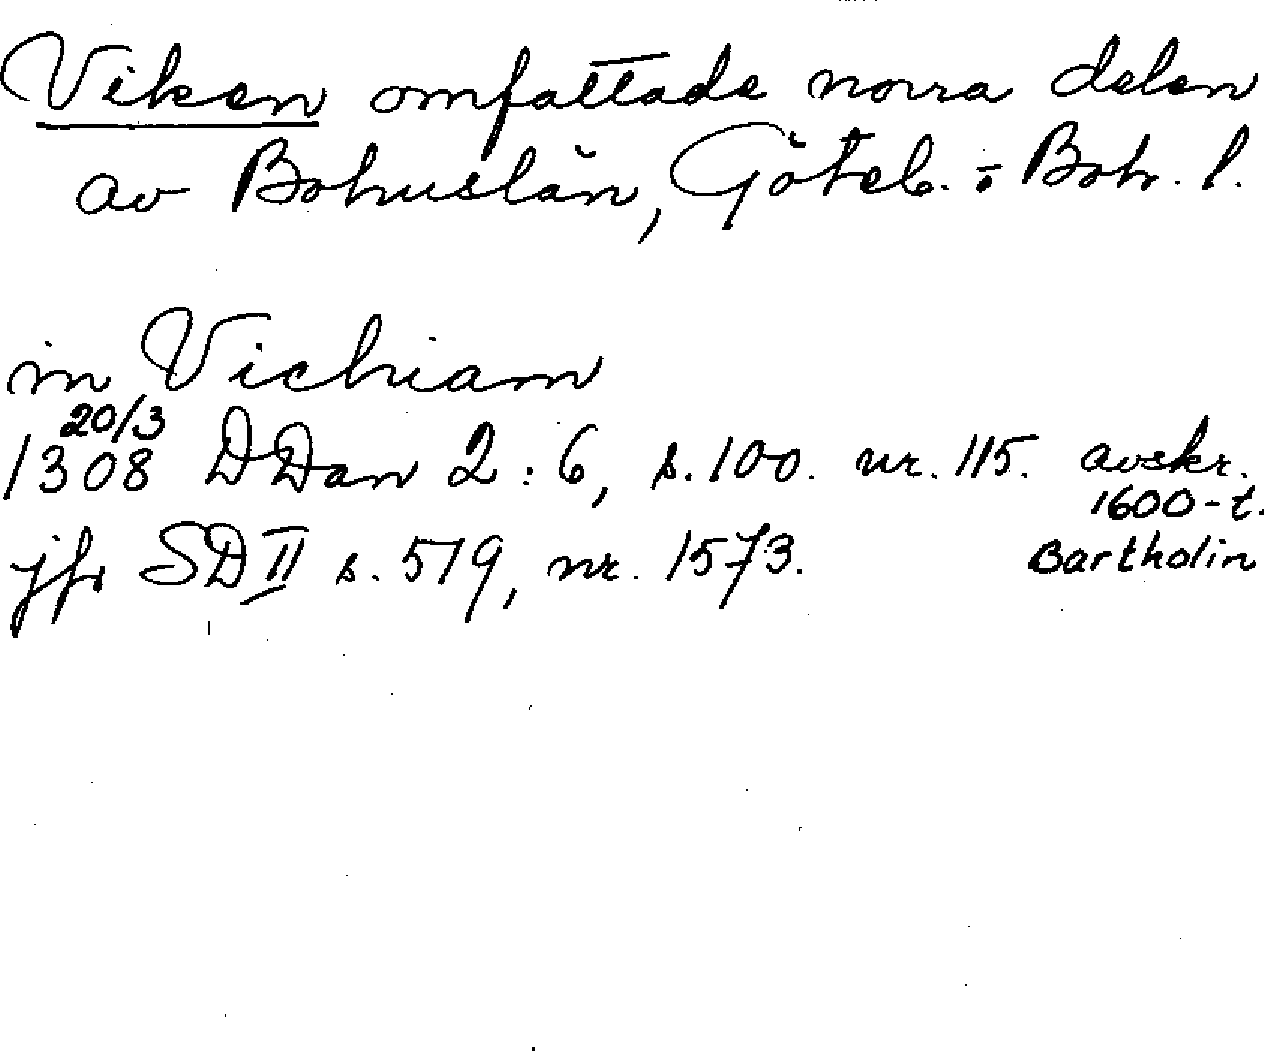 Viken omfattade norra delen
av Bohuslän, Göteb. o Boh. l.
in Vichiam
20/3
1308 DDan 2:6, s. 100. nr. 115. avskr.
1600-t.
jfr SD II s. 519, nr. 1573. Bartholin